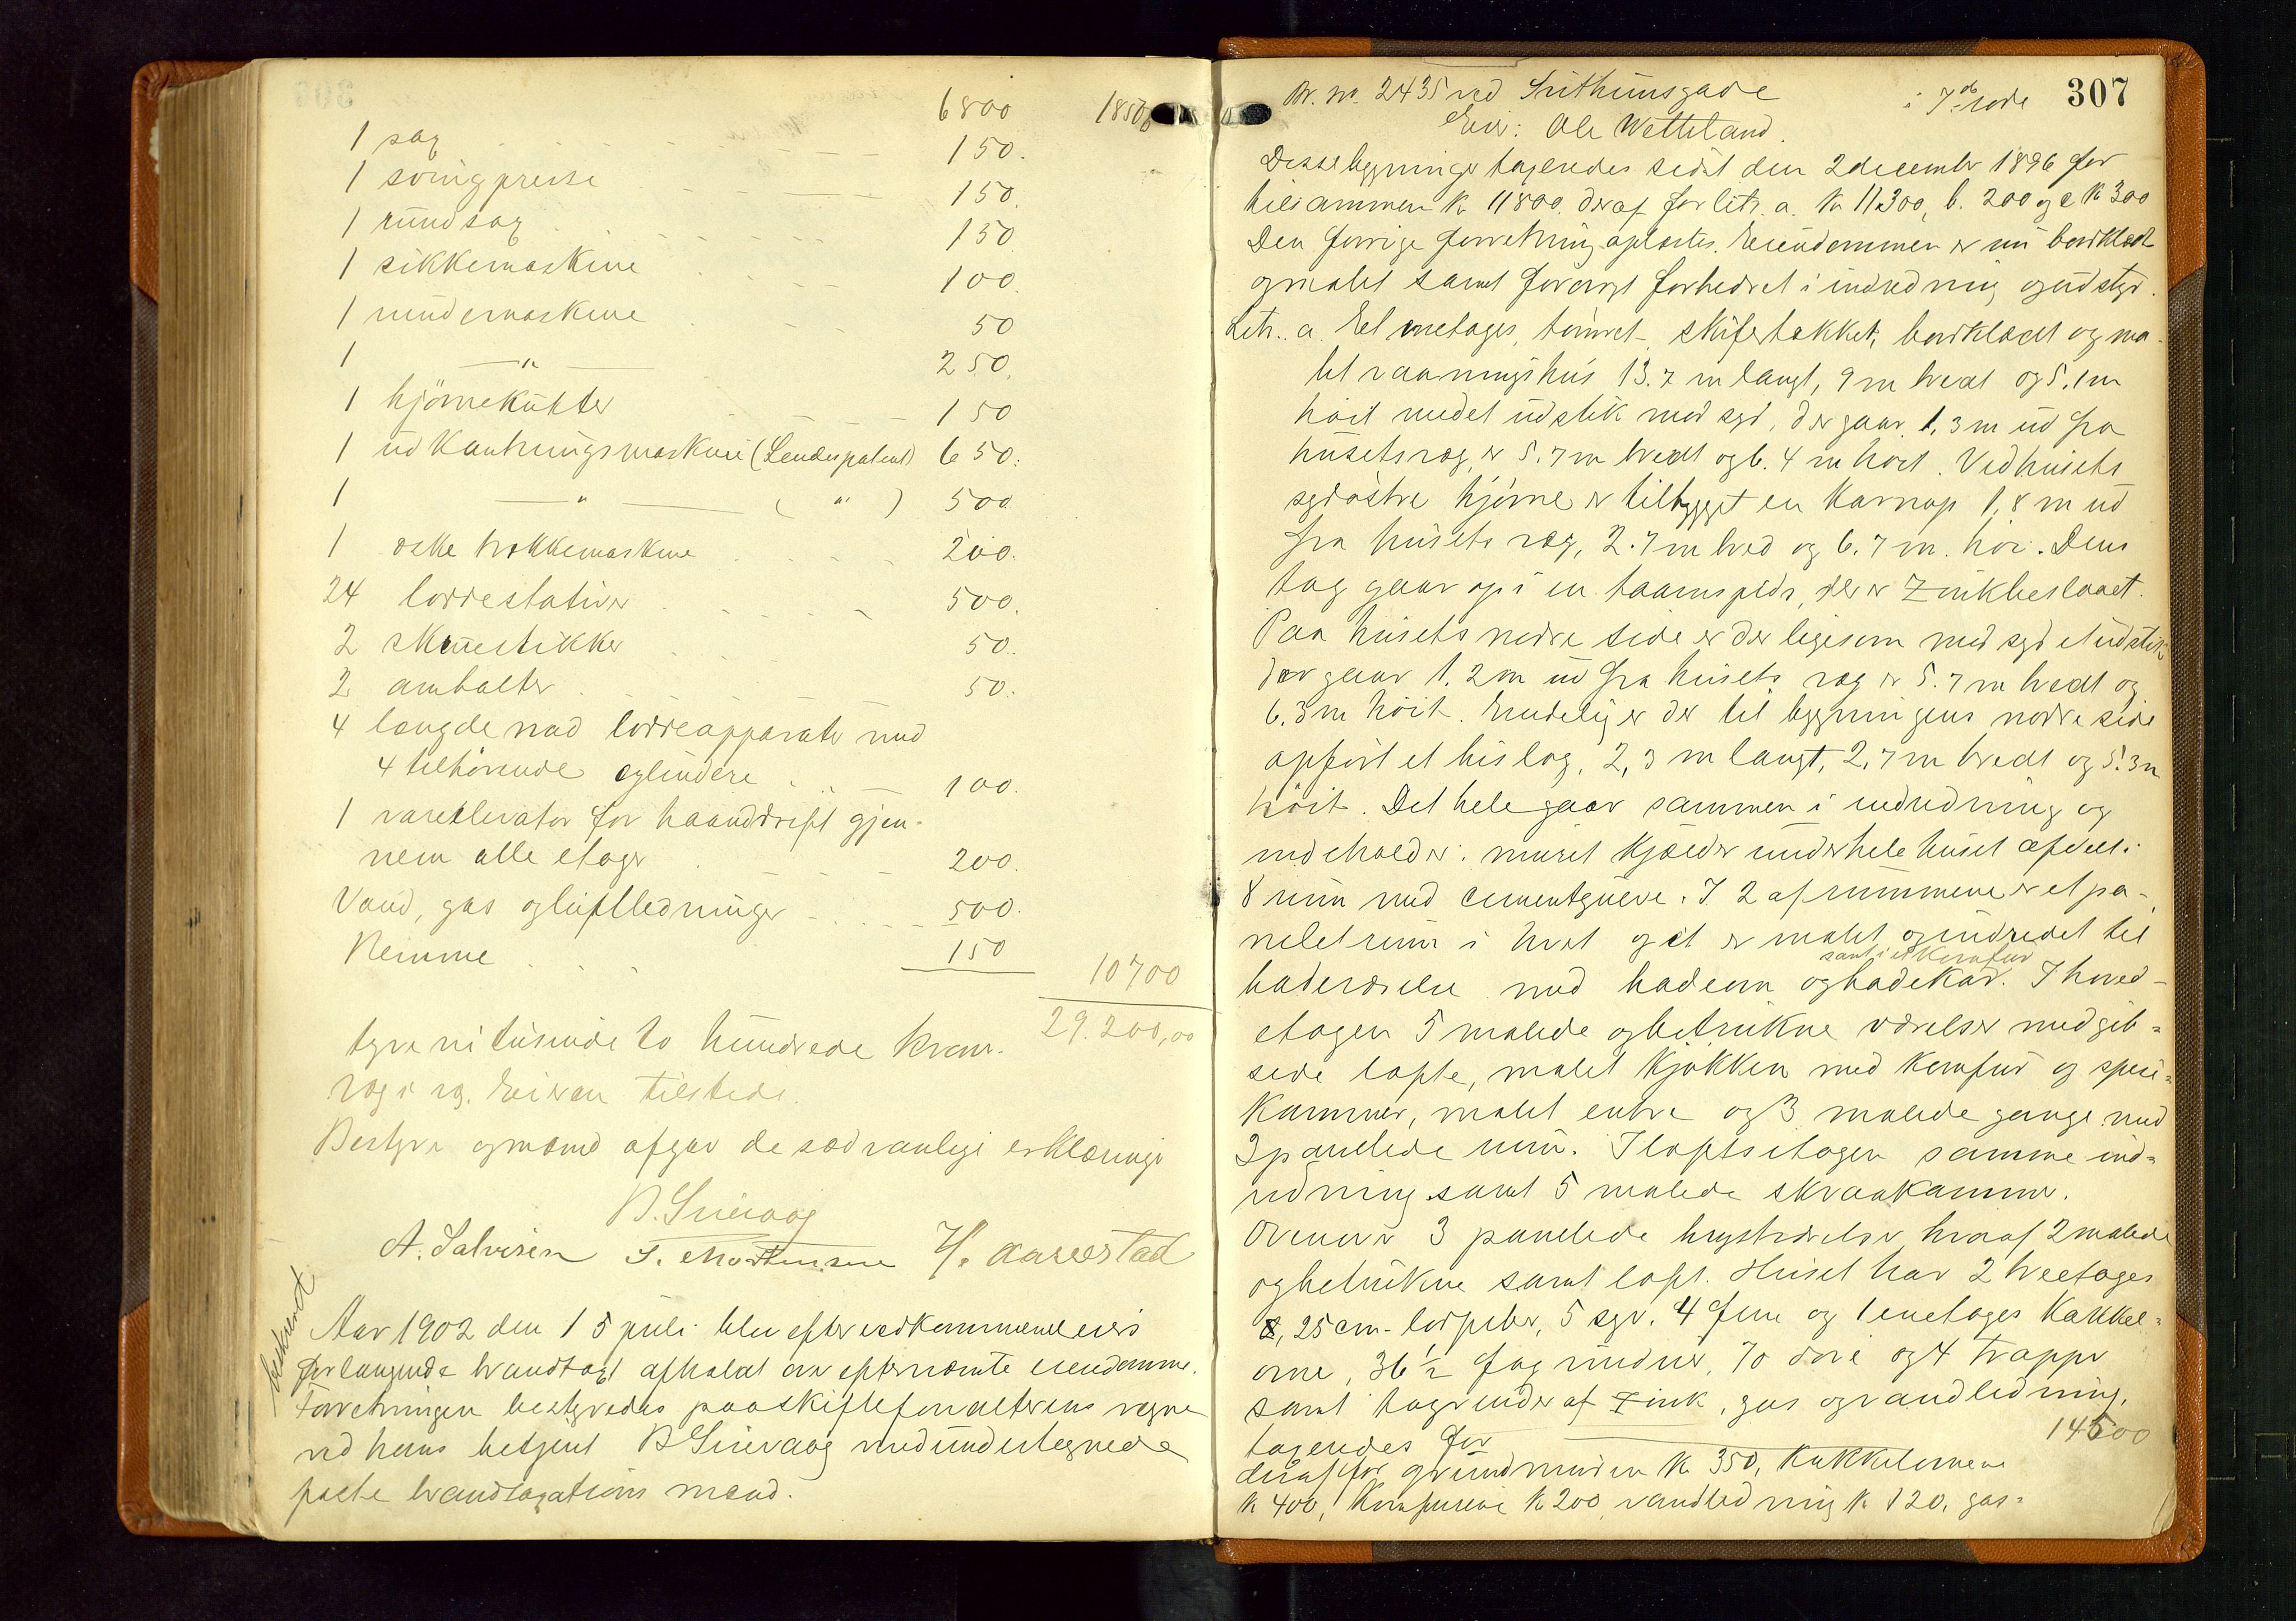 6800 18500
1 sag 150.
1 svingpresse 150.
1 rundsag 150
1 sikkemaskine 100.
1 rundemaskine 50
1 — " — 250.
1 hjörnekutter 150
1 udkantningsmaskine (Lendespatent) 650.
1 — " — ( " ) 500
1 æske trækkemaskine 200.
24 loddestativer 500.
2 skruestikker 50.
2 ambolter 50.
4 længdenad loddeapparater med
4 tilhörende cylindere 100.
1 vareelevator for haanddrift gjen-
nem alle etager 200.
Vand, gas og luftledninger 500.
Remme 150 10700
29.200,00
tyve ni tusinde to hundrede kroner.
Eieren tilstede.
Bestyrer og mænd afgav de sædvanlige erklæringer
B. Sirevaag
A. Salvesen T. Mortensen H. Aarrestad
beskrevet
Aar 1902 den 15 juli blev efter vedkommende eiers
forlangende brandtaxt afholdt over efternævnte eiendomme.
Forretningen bestyredes paa skifteforvalterens vegne
ved hans betjent B Sirevaag med undertegnede
faste brandtaxations mænd.
307
Br. No. 2435 ved Svithunsgade i 7de rode
Eier: Ole Wetteland.
Disse bygninger taxeredes sidst den 2 december 1896 for
tilsammen K 11800. deraf for litr. a. Kr 11300, b. 200 og c K 300
Den forrige forretning oplæstes. Eiendommen er nu bordklædt
og malet samt forövrigt forbedret i indredning og udstyr.
Litr. a. Et enetages, tömret, skifertækket, bordklædt og ma-
let vaaningshus 13.7 m langt, 9 m bredt og 5.1 m
höit med et udstik mod syd, der gaar 1,3 m ud fra
husets væg, er 5.7 m bredt og 6.4 m höit. Ved husets
sydöstre hjörne er tilbygget en karnap 1,8 m ud
fra husets væg, 2.7 m bred og 6.7 m. höi. Dens
tag gaar op i en taarnspids, der er zinkbeslaaet.
Paa husets nordre side er der ligesom mod syd et udstik
der gaar 1.2 m ud fra husets væg er 5.7 m bredt og
6.3 m höit. Endelig er der til bygningens nordre side
opfört et bislag, 2,3 m langt, 2,7 m bredt og 5.3 m
höit. Det hele gaar sammen i indredning og
indeholder: muret kjælder under hele huset afdelt i
8 rum med cementgulve. I 2 af rummene er et pa-
nelet rum i hvert og et er malet og indredet til
samt i et komfur
badeværelse med badeovn og badekar. I hoved-
etagen 5 malede og betrukne værelser med gib-
sede lofte, malet kjökken med komfur og spise-
kammer, malet entre og 3 malede gange med
2 panelede rum. I loftsetagen samme ind-
redning samt 5 malede skraakammer.
Ovenover 3 panelede kvistværelser hvoraf 2 malede
og betrukne samt loft. Huset har 2 treetages
25 cm.- lodpiber, 5 syv, 4 fem og 1 enetages kakkel-
ovne, 36 1/2 fag vinduer, 70 döre og 4 trapper
samt tagrender af zink, gas og vandledning,
taxeredes for 14500
deraf for grundmuren K 350, kakkelovnene
K 400, komfurene K 200, vandledning K 120, gas-